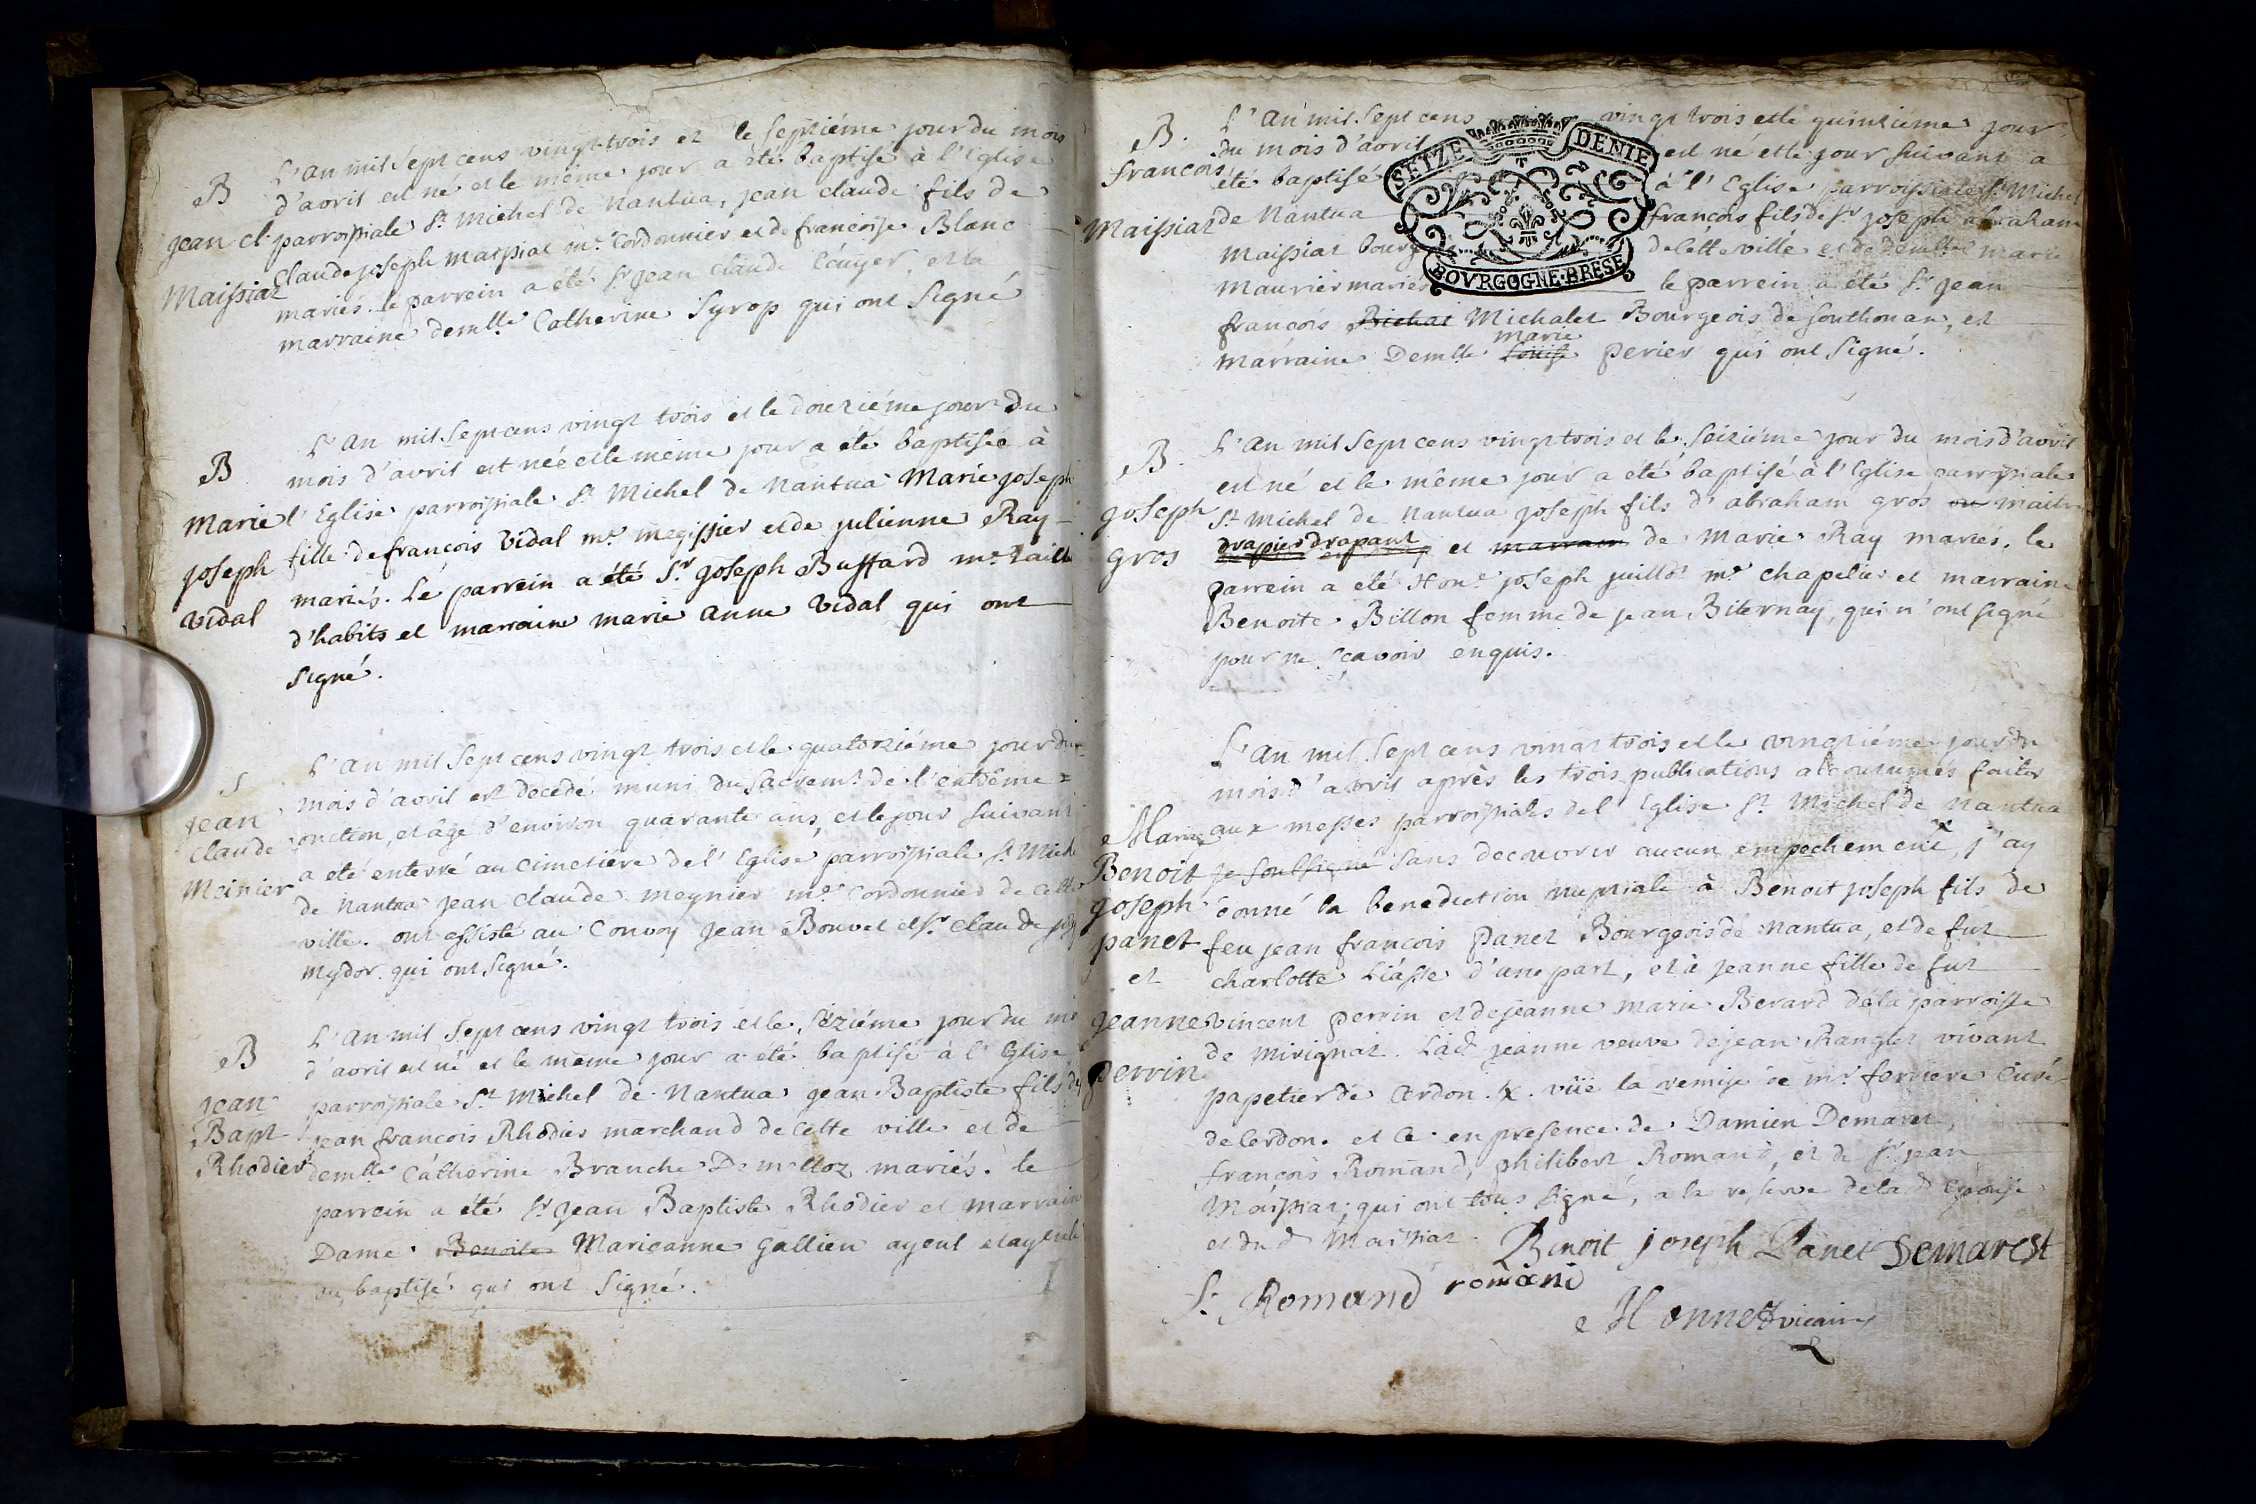 L'an mil sept cens vingt trois et le septiéme jour du mois
B d'avril est né et le même jour a été baptisé à l'Eglise
jean cl. parroissiale St. Michel de Nantua, jean claude fils de
Maissiat claude joseph maissiat me. Cordonnier et de francoise Blanc
mariés. le parrein a été Sr. jean claude et la
marraine demlle. Catherine Syrop qui ont signé
L'an mil sept cens vingt trois et le douziéme jour du
B mois d'avril est née et le même jour a été baptisée à
Marie l'Eglise parroissiale St. Michel de Nantua Marie joseph
joseph fille de francois Vidal me. megissier et de julienne Ray
Vidal mariés. Le parrein a été Sr. joseph Buffard me. taille
d'habits et marraine marie anne Vidal qui ont
signé.
S L'an mil sept cens vingt trois et le quatorziéme jour du
jean mois d'avril est decedé muni du sacremt. de l'extrême =
Claude onction, et âgé d'environ quarante ans, et le jour suivant
Meinier a été enterré au cimetiere de l'Eglise parroissiale St. Mich
de Nantua jean claude meynier me. Cordonnier de cette
ville. ont assisté au Convoy jean Bouvet et Sr. claude
mydor qui ont signé.
L'an mil sept cens vingt trois et le séziéme jour du
B d'avril est né et le même jour a été baptisé à l'Eglise
jean parroissiale St. Michel de Nantua jean Baptiste fils de
Bapt jean francois Rhodier marchand de cette ville et de
Rhodier demlle. Catherine Branche Demelloz mariés. le
parrein a été Sr. jean Baptiste Rhodier et marrain
Dame Benoite Marieanne Gallien ayeul et ayeule
du baptisé qui ont signé.
B. L'an mil sept cens vingt trois et le quinziéme jour
francois du mois d'avril est né et le jour suivant a
été baptisé à l'Eglise parroissiale St. Michel
Maissiat de Nantua francois fils de Sr. joseph abraham
Maissiat de cette ville et de Demlle. marie
Maurier mariés le parrein a été Sr. jean
francois Bichat Michalet Bourgeois de et
marraine Demlle. Louise marie perier qui ont signé.
SEIZE DENIE
BOVRGOGNE.BRESE
L'an mil sept cens vingt trois et le seiziéme jour du mois d'avril
B. est né et le même jour a été baptisé à l'Eglise parroissiale
joseph St. Michel de Nantua joseph fils d'abraham gros ou maitre
gros drapier drapant et marram de Marie Ray maries. le
parrein a eté Hone. joseph juillot me. chapelier et marraine
Benoite Billon femme de jean Biternay, qui n'ont signé
pour ne sçavoir enquis.
L'an mil sept cens vingt trois et le vingtiéme jour du
mois d'avril après les trois publications accoutumés faites
Mariag aux messes parroissiales de l'Eglise St. Michel de Nantua
Benoit je soussigné sans decouvrir aucun empechement, j'ay
joseph donné la benediction nuptiale à Benoit joseph fils de
panet feu jean francois panet Bourgeois de Nantua, et de fut
et charlotte Liasse d'une part, et à jeanne fille de fut
jeanne vincent perrin et de jeanne marie Berard de la parroisse
perrin de mirignat. Lad. jeanne veuve de jean Ranglet vivant
papetier de Cerdon. vüe la remise de mr. ferriere Curé
de Cerdon. et ce en presence de Damien Demaret,
francois Romand, philibert Romand, et de Sr. jean
Maissiat; qui ont tous signé, a la reserve de la d. épouse
et du d Maissiat.
Benoit joseph Panet Demarest
f. Romand romand
Monnet vicaire